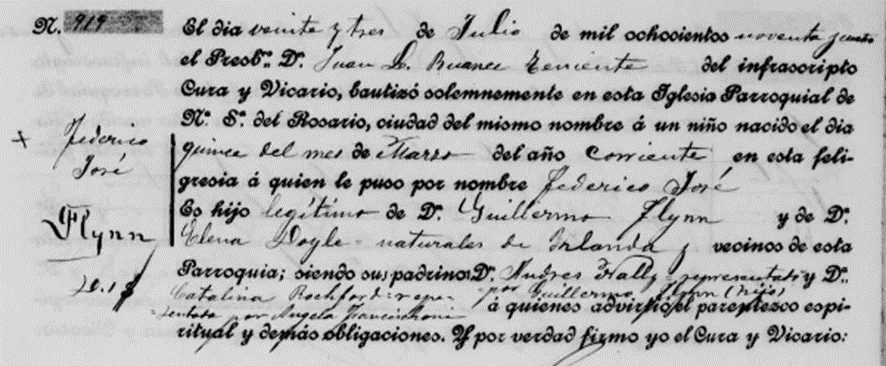 N. 919
El dia veinte y tres de Julio de mil ochocientos noventa y cuatro
el Presb.º D.º Juan L. Teniente del infrascripto
Cura y Vicario, bautizó solemnemente en esta Iglesia Parroquial de
N.ª S.ª del Rosario, ciudad del mismo nombre á un niño nacido el dia
quince del mes de Marzo del año corriente en esta feli-
gresia á quien le puso por nombre Federico José
Es hijo legítimo de D.º Guillermo Flynn y de D.ª
Elena Doyle - naturales de Irlanda y vecinos de esta
Parroquia; siendo sus padrinos D.º Andres representado y D.ª
por Guillermo Flynn (hijo)
Catalina Rochford repre-
sentada por Angela
á quienes advirtio el parentezco espi-
ritual y demás obligaciones. Y por verdad firmo yo el Cura y Vicario:
+ Federico
José
Flynn